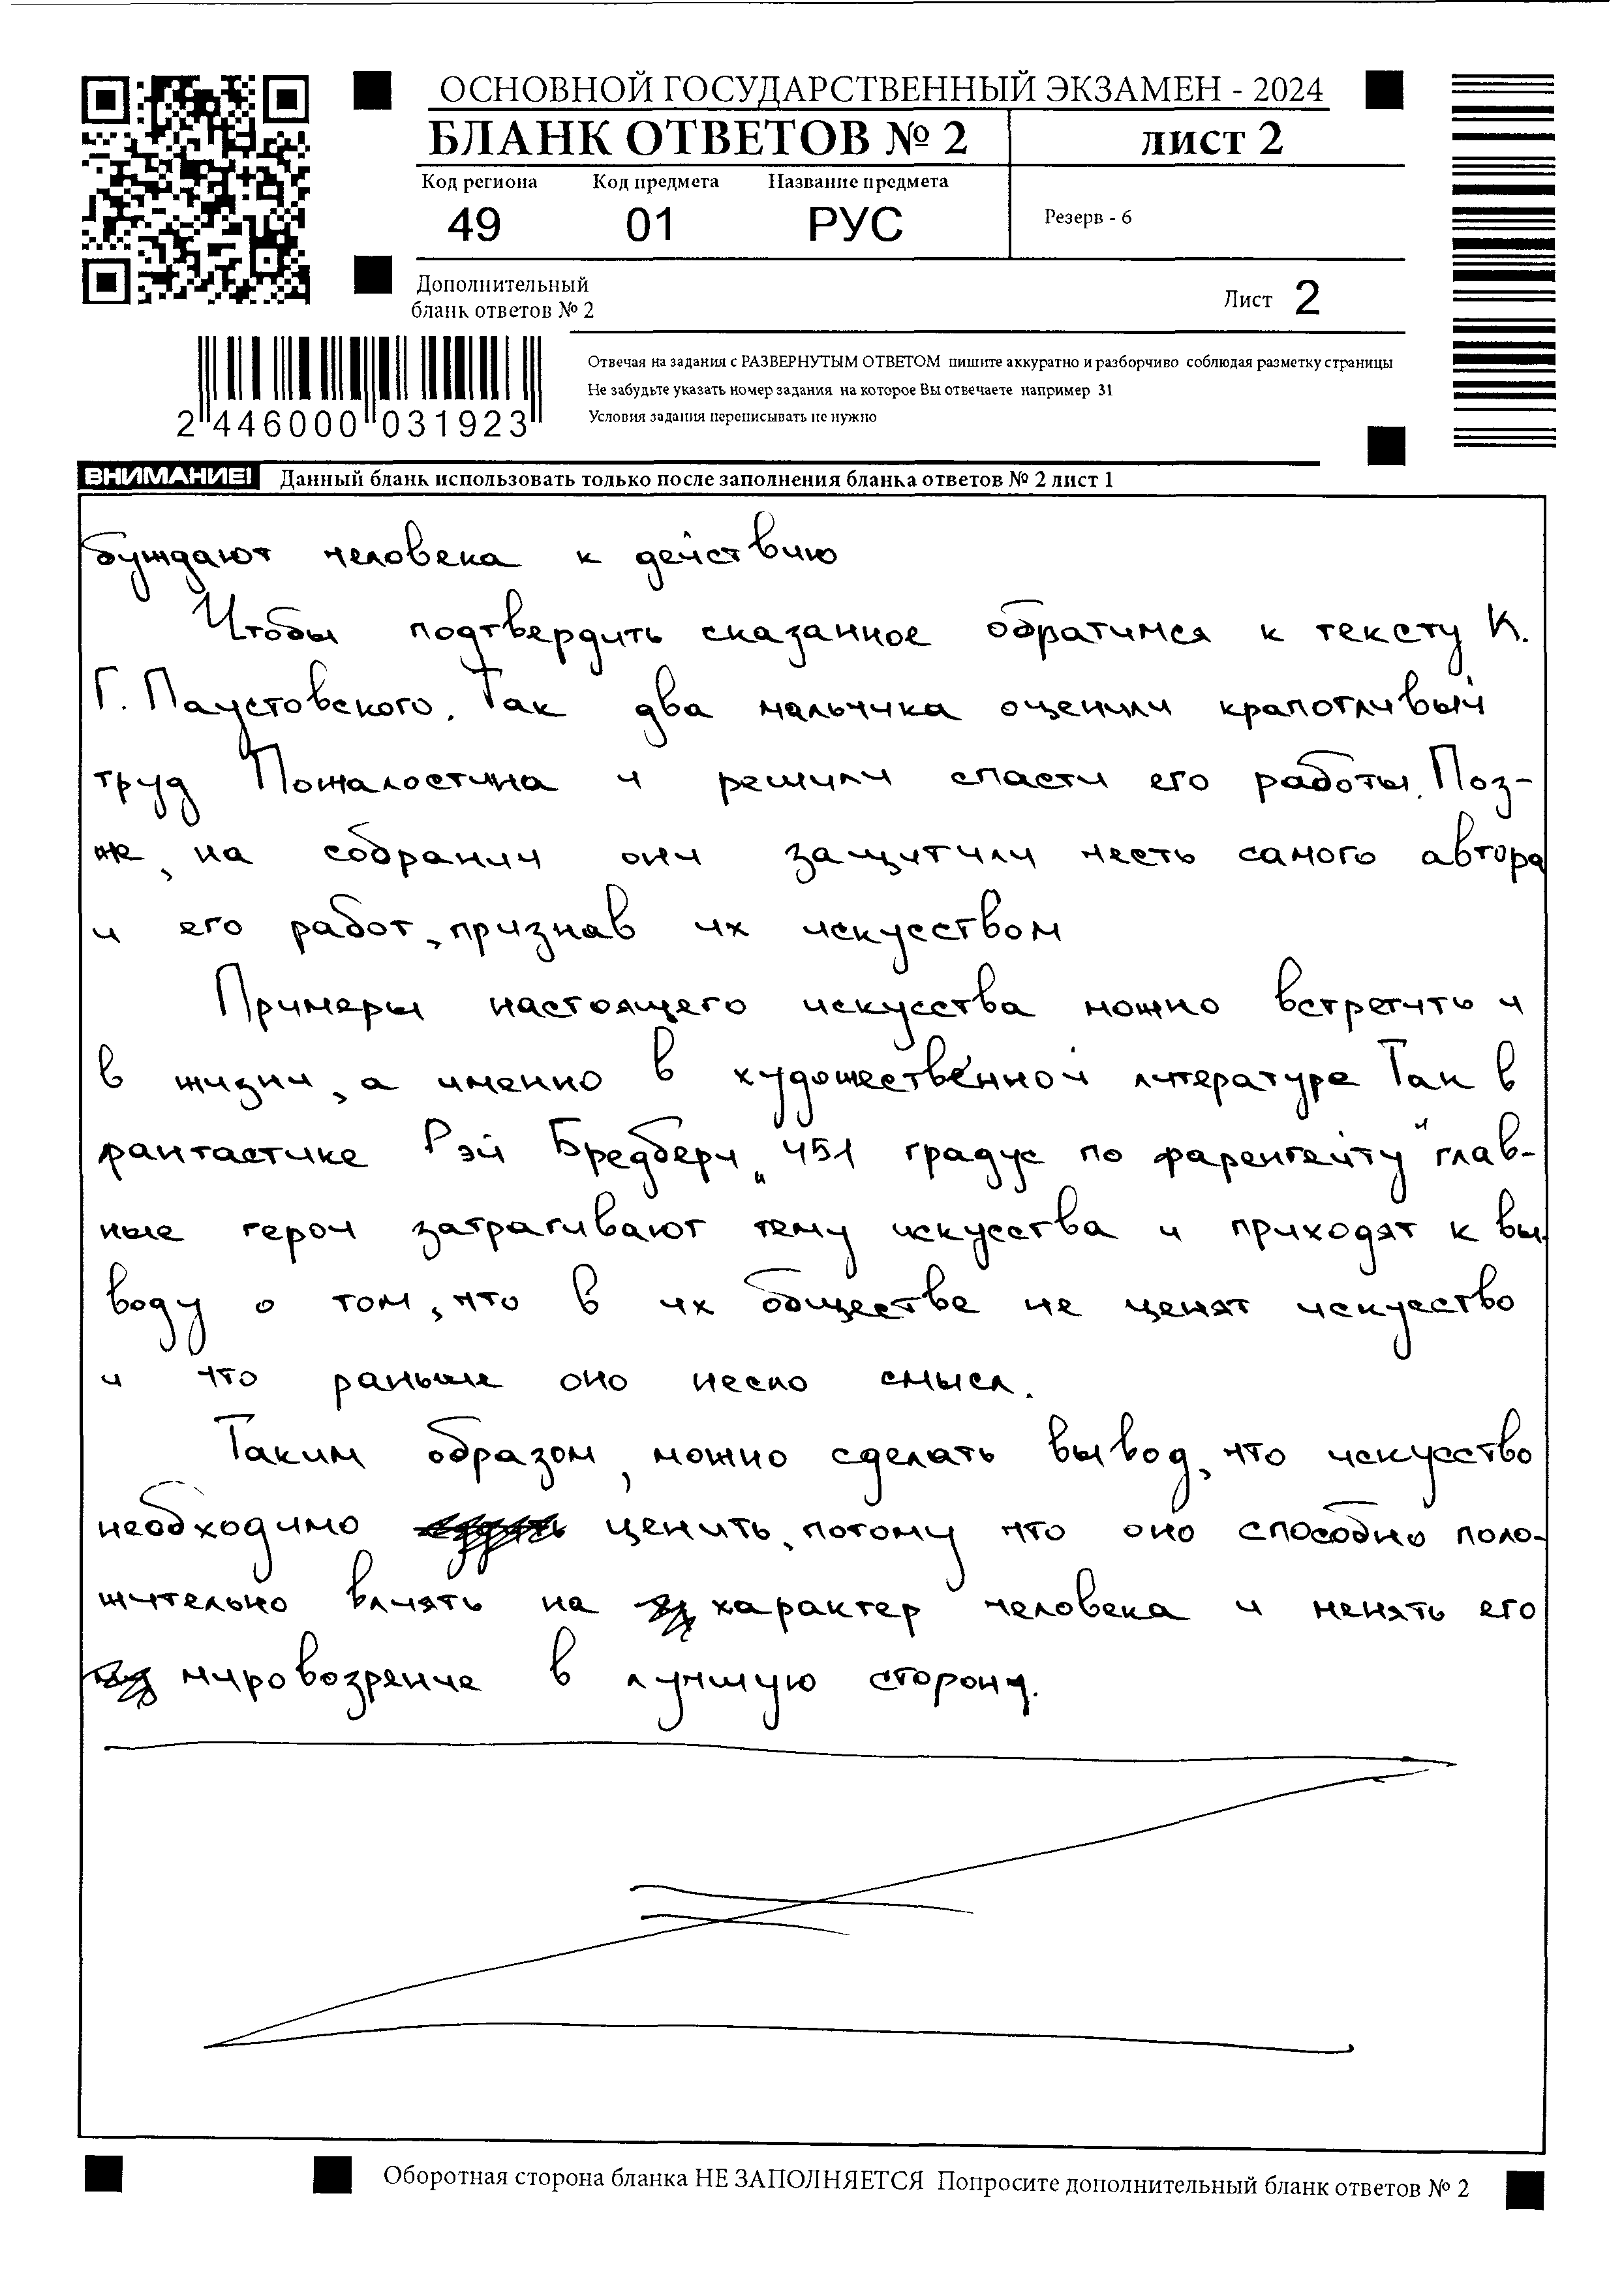 ОСНОВНОЙ ГОСУДАРСТВЕННЫЙ ЭКЗАМЕН - 2024
БЛАНК ОТВЕТОВ № 2
лист 2
Код региона Код предмета Название предмета
49 01 РУС
Резерв - 6
Дополнительный
бланк ответов № 2
Лист 2
Отвечая на задания с РАЗВЕРНУТЫМ ОТВЕТОМ пишите аккуратно и разборчиво соблюдая разметку страницы
Не забудьте указать номер задания на которое Вы отвечаете например 31
Условия задания переписывать не нужно
2 446000 031923
ВНИМАНИЕ! Данный бланк использовать только после заполнения бланка ответов № 2 лист 1
буждают человека к действию
Чтобы подтвердить сказанное обратимся к тексту К.
Г. Паустовского. Так два мальчика оценили крапотливый
труд Пожалостина и решили спасти его работы. Поз-
же, на собрании они защитили честь самого автора
и его работ, признав их искусством
Примеры настоящего искусства можно встретить и
в жизни, а именно в художественной литературе Так в
фантастике Рэй Бредбери „451 градус по фаренгейту" глав-
ные герои затрагивают тему искусства и приходят к вы-
воду о том, что в их обществе не ценят искусство
и что раньше оно несло смысл.
Таким образом, можно сделать вывод, что искусство
необходимо ценить, потому что оно способно поло-
жительно влиять на характер человека и менять его
мировозрение в лучшую сторону.
Оборотная сторона бланка НЕ ЗАПОЛНЯЕТСЯ Попросите дополнительный бланк ответов № 2